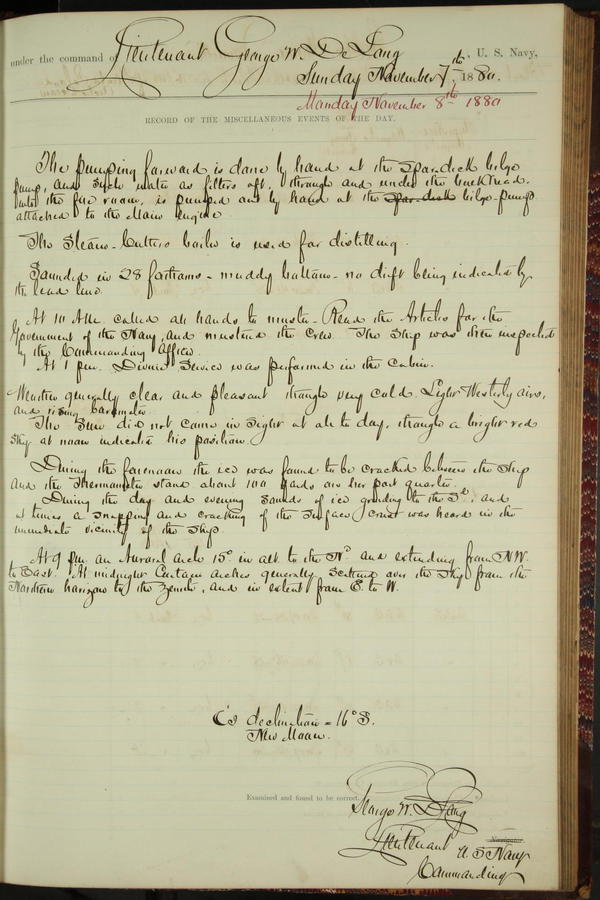 under the command of Lieutenant George W. De Long, U. S. Navy,
Sunday November 7th, 1880.
Monday November 8th 1880
RECORD OF THE MISCELLANEOUS EVENTS OF THE DAY.
The pumping forward is done by hand at the Spar-deck bilge
pump, and such water as filters aft, through and under the bulkhead
into the fire room, is pumped out by hand at the Spar-deck bilge-pump
attached to the Main Engine
The Steam-Cutters boiler is used for distilling.
Sounded in 28 fathoms - muddy bottom - no drift being indicated by
the lead line.
At 10 A.M. called all hands to muster - Read the Articles for the
Government of the Navy, and mustered the Crew. The Ship was then inspected
by the Commanding Officer.
At 1 p.m. Divine Service was performed in the Cabin.
Weather generally clear and pleasant though very cold. Light Westerly airs,
and rising barometer
The Sun did not come in Sight at all to day, though a bright red
Sky at noon indicated his position.
During the forenoon the ice was found to be cracked between the Ship
and the Thermometer stand about 100 yards on her port quarter.
During the day and evening Sounds of ice grinding to the Sd., and
at times a snapping and cracking of the Surface crust was heard in the
immediate vicinity of the Ship.
At 9 p.m. an Auroral Arch 15° in alt. to the Nd. and extending from N.W.
to East. At midnight Curtain Arches generally Scattered over the Sky from the
Northern horizon to the Zenith, and in extent from E. to W.
☾'s declination = 16° S.
New Moon.
Examined and found to be correct.
George W. De Long
Lieutenant Navigator
U. S. Navy
Commanding